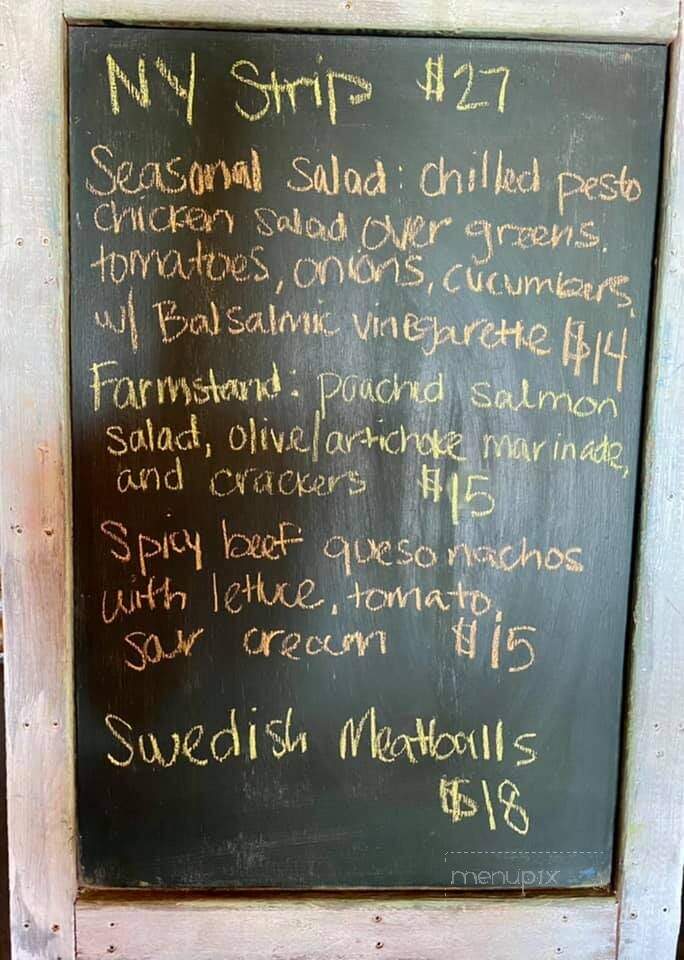 NY Strip $27
Seasonal Salad: chilled pesto
chicken salad over greens.
tomatoes, onions, cucumbers,
w/ Balsalmic vinegarette $14
Farmstand: pouchid salmon
salad, olive/artichoke marinade,
and crackers $15
Spicy beef queso nachos
with lettuce, tomato,
sour cream $15
Swedish Meatballs
$18
menupix